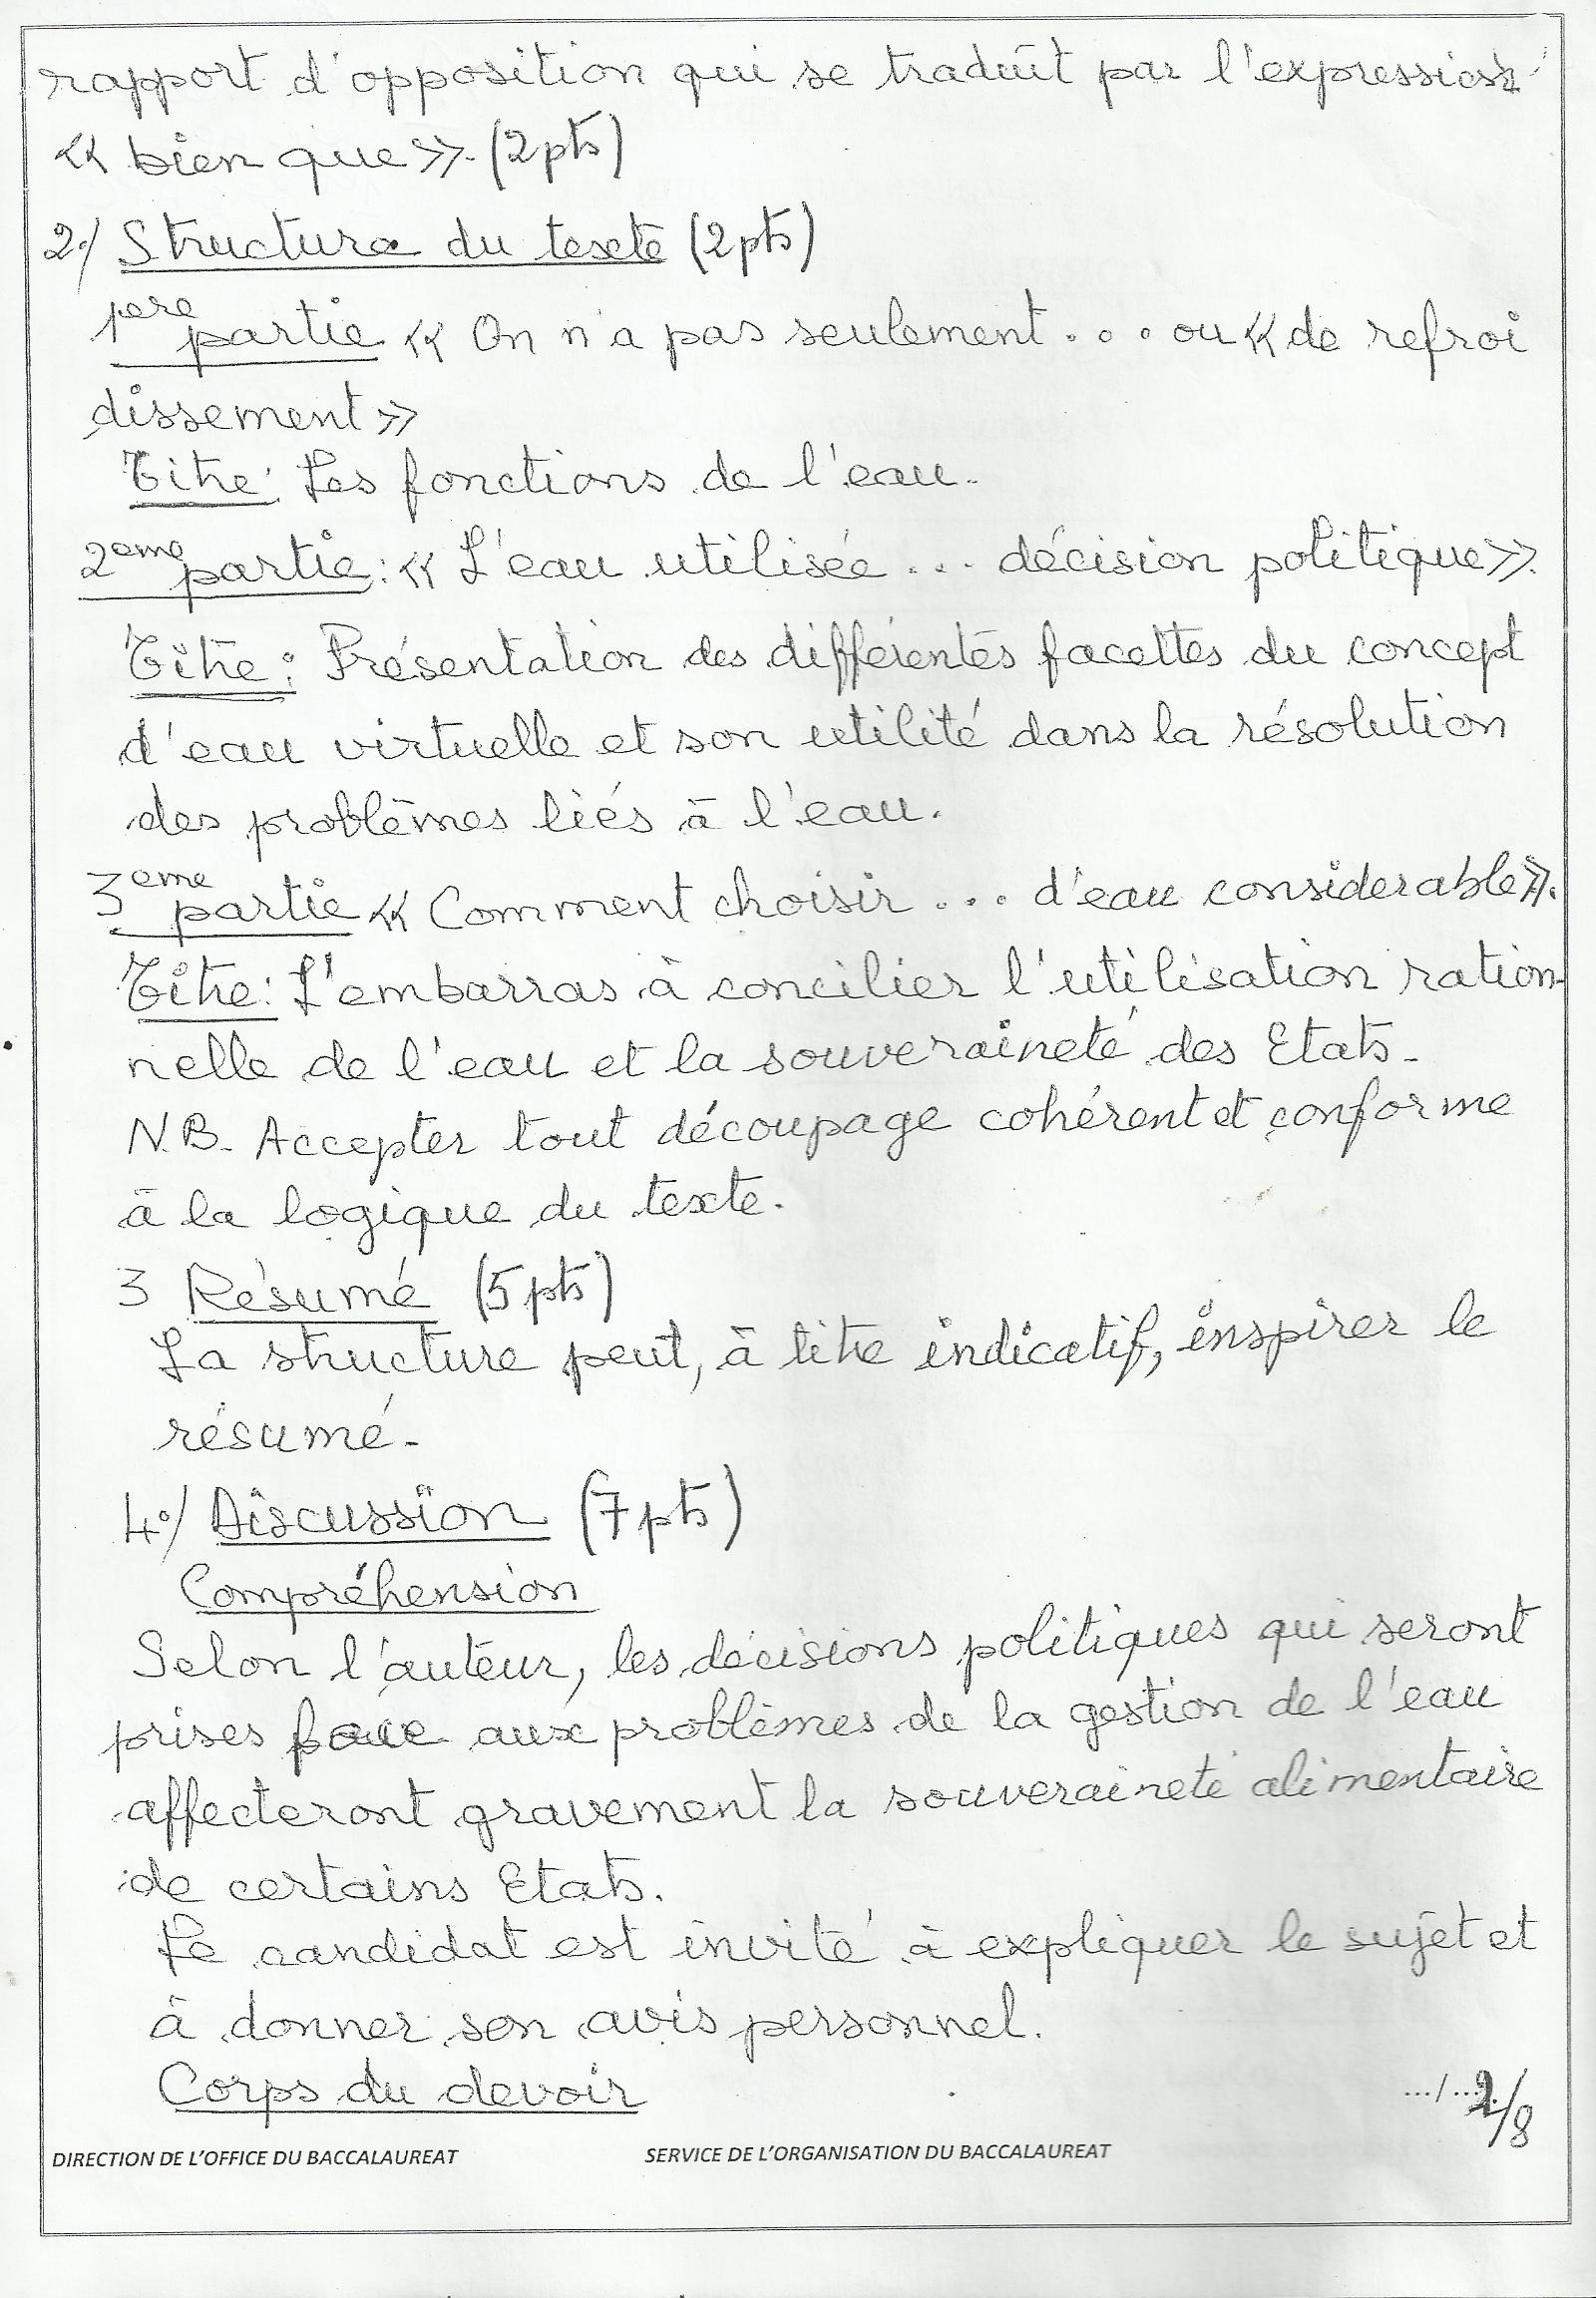 rapport d'opposition qui se traduit par l'expression
« bien que ». (2pts)
2°/ Structure du texte (2pts)
1ere partie « On n'a pas seulement... ou « de refroi
dissement »
Titre: Les fonctions de l'eau.
2eme partie: « L'eau utilisée... décision politique ».
Titre: Présentation des différentes facettes du concept
d'eau virtuelle et son utilité dans la résolution
des problèmes liés à l'eau.
3eme partie « Comment choisir... d'eau considerable ».
Titre: L'embarras à concilier l'utilisation ration-
nelle de l'eau et la souveraineté des Etats.
N.B. Accepter tout découpage cohérent et conforme
à la logique du texte.
3 Résumé (5pts)
La structure peut, à titre indicatif, inspirer le
résumé.
4°/ Discussion (7pts)
Compréhension
Selon l'auteur, les décisions politiques qui seront
prises face aux problèmes de la gestion de l'eau
affecteront gravement la souveraineté alimentaire
de certains Etats.
Le candidat est invité à expliquer le sujet et
à donner son avis personnel.
Corps du devoir
.../... 2/8
DIRECTION DE L'OFFICE DU BACCALAUREAT SERVICE DE L'ORGANISATION DU BACCALAUREAT